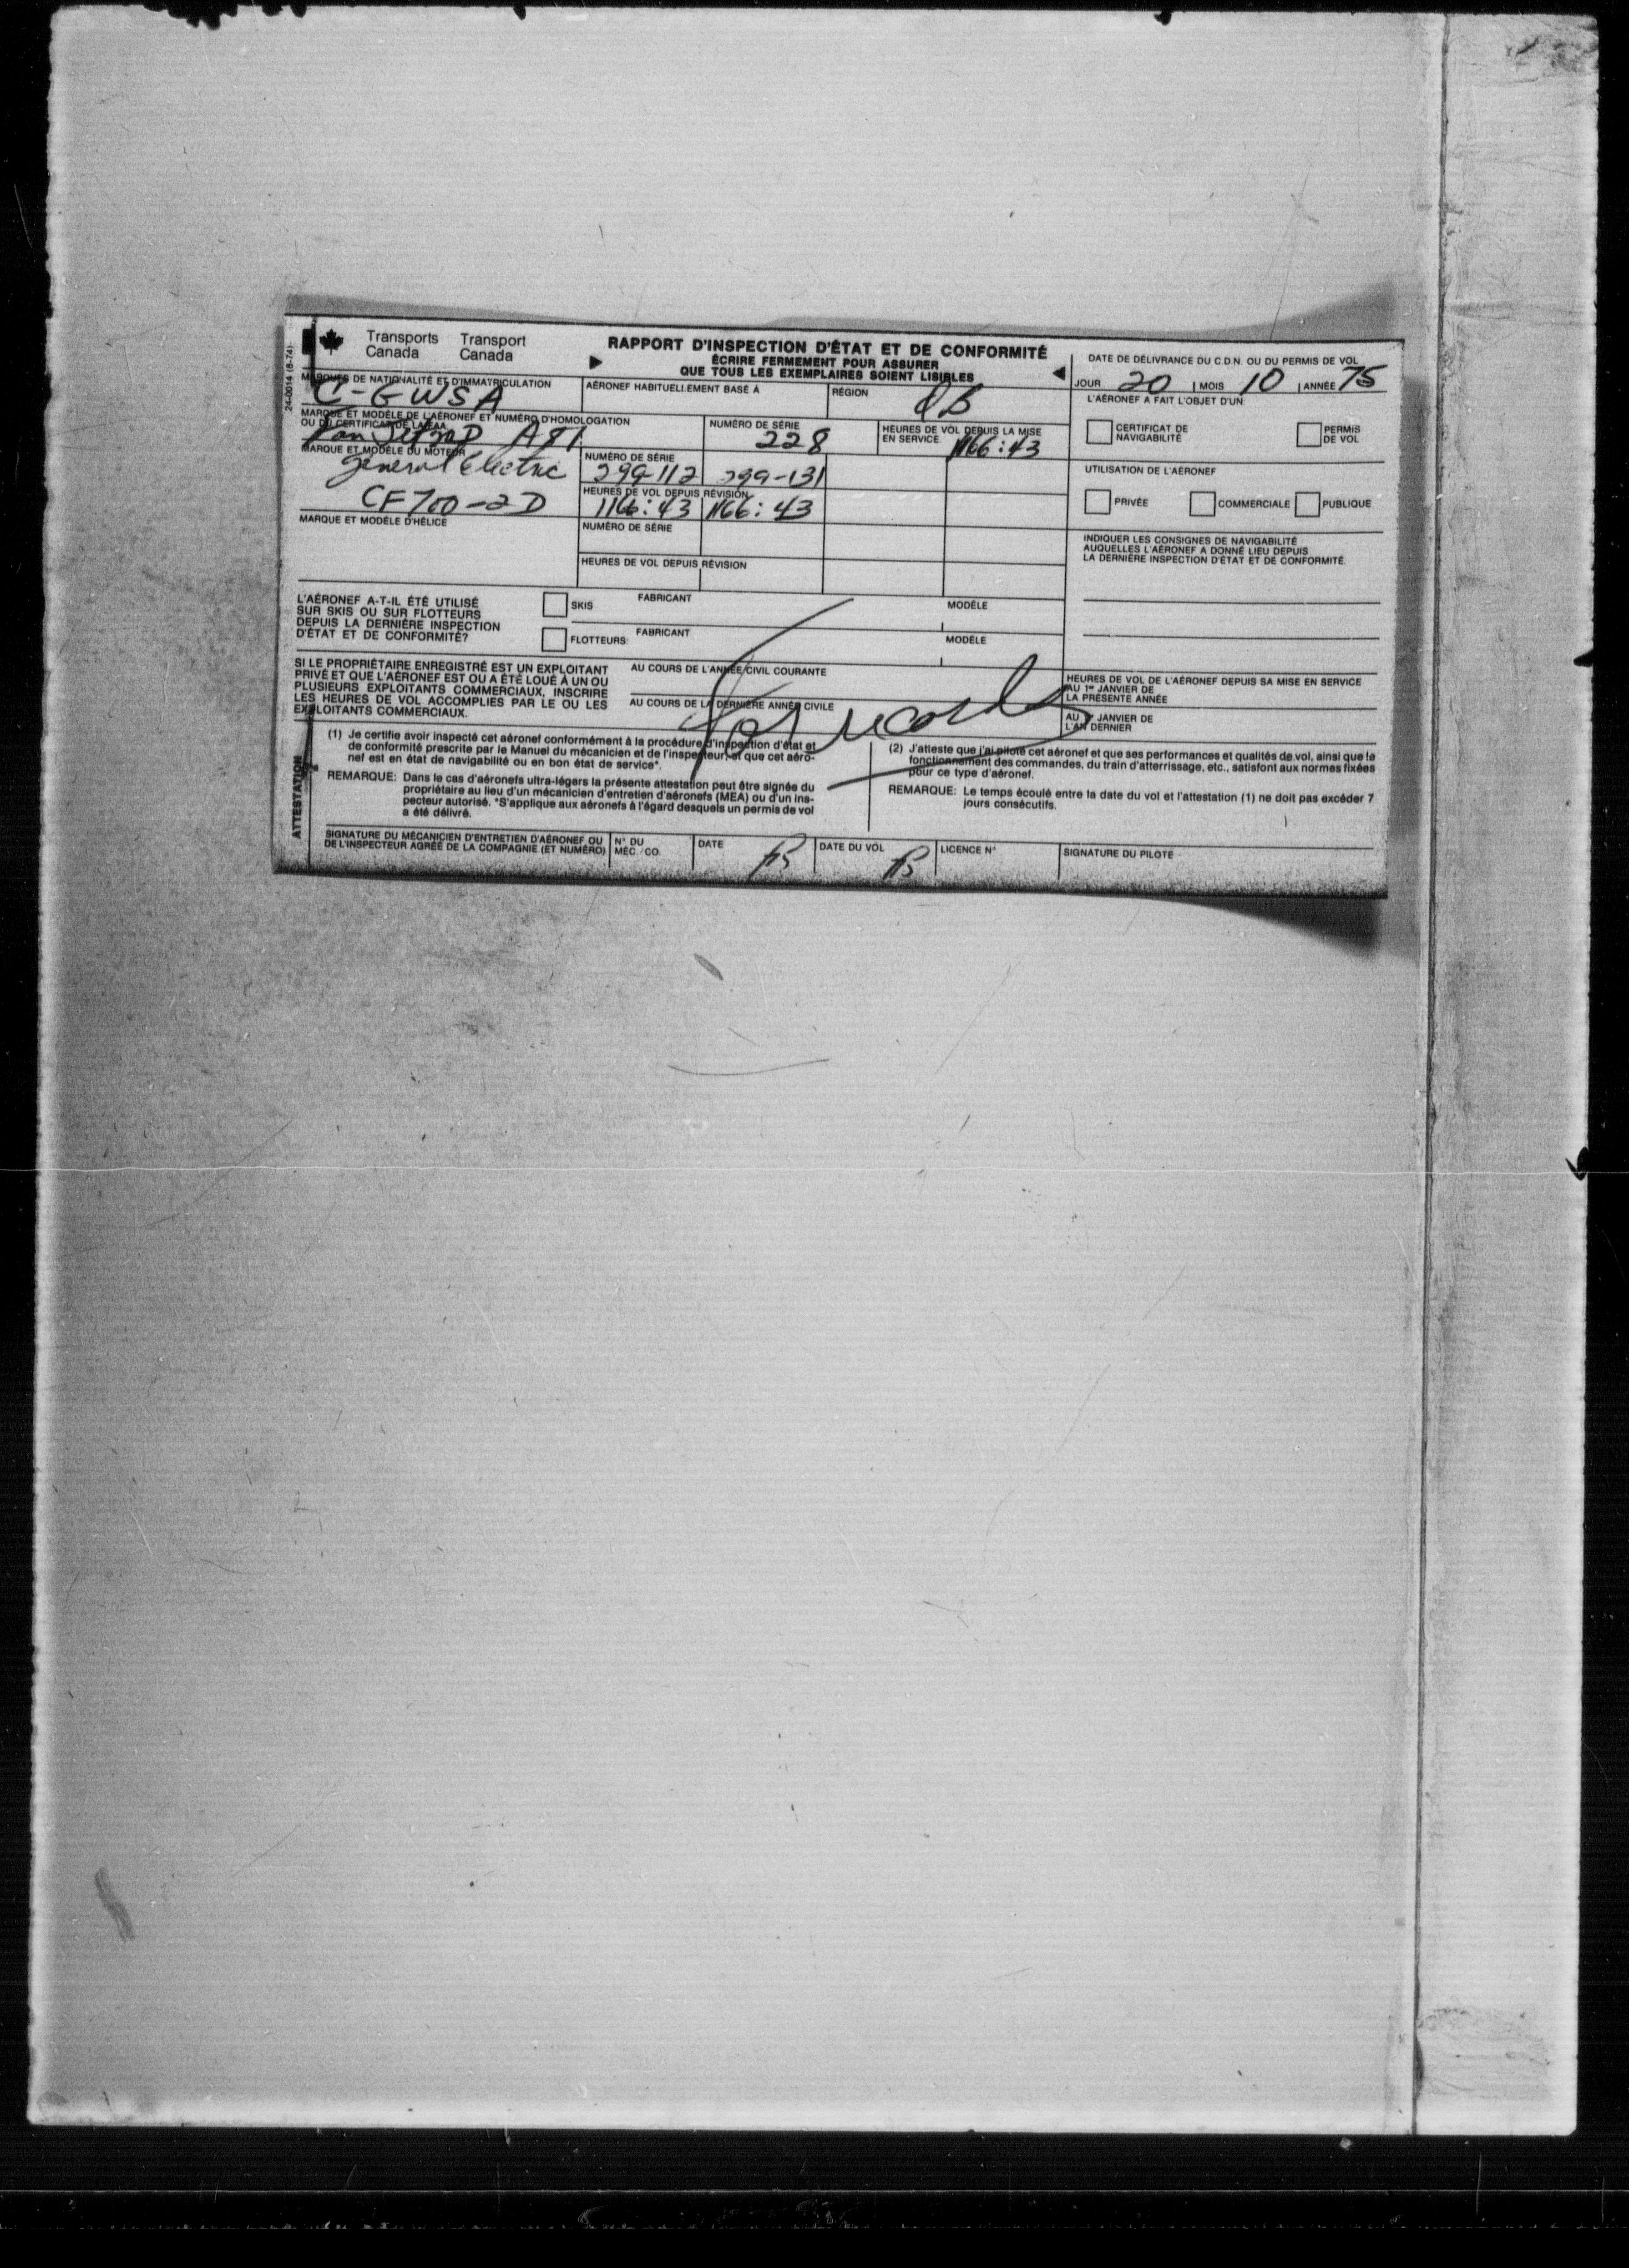 24-0014 (8-74)
Transports Canada
Transport Canada
RAPPORT D'INSPECTION D'ÉTAT ET DE CONFORMITÉ
ÉCRIRE FERMEMENT POUR ASSURER
QUE TOUS LES EXEMPLAIRES SOIENT LISIBLES
DATE DE DÉLIVRANCE DU C.D.N. OU DU PERMIS DE VOL
JOUR 20 MOIS 10 ANNÉE 75
MARQUES DE NATIONALITÉ ET D'IMMATRICULATION
C-GWSA
AÉRONEF HABITUELLEMENT BASÉ À
RÉGION
L'AÉRONEF A FAIT L'OBJET D'UN:
CERTIFICAT DE NAVIGABILITÉ
PERMIS DE VOL
MARQUE ET MODÈLE DE L'AÉRONEF ET NUMÉRO D'HOMOLOGATION
OU DU CERTIFICAT DE LA FAA
Fan Jet
NUMÉRO DE SÉRIE
228
HEURES DE VOL DEPUIS LA MISE
EN SERVICE
1166:43
MARQUE ET MODÈLE DU MOTEUR
General Electric
CF700-2D
NUMÉRO DE SÉRIE
299-112 299-131
HEURES DE VOL DEPUIS RÉVISION
1166:43 1166:43
UTILISATION DE L'AÉRONEF
PRIVÉE COMMERCIALE PUBLIQUE
MARQUE ET MODÈLE D'HÉLICE
NUMÉRO DE SÉRIE
HEURES DE VOL DEPUIS RÉVISION
INDIQUER LES CONSIGNES DE NAVIGABILITÉ
AUQUELLES L'AÉRONEF A DONNÉ LIEU DEPUIS
LA DERNIÈRE INSPECTION D'ÉTAT ET DE CONFORMITÉ
L'AÉRONEF A-T-IL ÉTÉ UTILISÉ
SUR SKIS OU SUR FLOTTEURS
DEPUIS LA DERNIÈRE INSPECTION
D'ÉTAT ET DE CONFORMITÉ?
SKIS FABRICANT MODÈLE
FLOTTEURS: FABRICANT MODÈLE
SI LE PROPRIÉTAIRE ENREGISTRÉ EST UN EXPLOITANT
PRIVÉ ET QUE L'AÉRONEF EST OU A ÉTÉ LOUÉ À UN OU
PLUSIEURS EXPLOITANTS COMMERCIAUX, INSCRIRE
LES HEURES DE VOL ACCOMPLIES PAR LE OU LES
EXPLOITANTS COMMERCIAUX.
AU COURS DE L'ANNÉE CIVIL COURANTE
AU COURS DE LA DERNIÈRE ANNÉE CIVILE
for records
HEURES DE VOL DE L'AÉRONEF DEPUIS SA MISE EN SERVICE
AU 1er JANVIER DE
LA PRÉSENTE ANNÉE
AU 1er JANVIER DE
L'AN DERNIER
ATTESTATION
(1) Je certifie avoir inspecté cet aéronef conformément à la procédure d'inspection d'état et
de conformité prescrite par le Manuel du mécanicien et de l'inspecteur, et que cet aéro-
nef est en état de navigabilité ou en bon état de service*.
REMARQUE: Dans le cas d'aéronefs ultra-légers la présente attestation peut être signée du
propriétaire au lieu d'un mécanicien d'entretien d'aéronefs (MEA) ou d'un ins-
pecteur autorisé. *S'applique aux aéronefs à l'égard desquels un permis de vol
a été délivré.
(2) J'atteste que j'ai piloté cet aéronef et que ses performances et qualités de vol, ainsi que le
fonctionnement des commandes, du train d'atterrissage, etc., satisfont aux normes fixées
pour ce type d'aéronef.
REMARQUE: Le temps écoulé entre la date du vol et l'attestation (1) ne doit pas excéder 7
jours consécutifs.
SIGNATURE DU MÉCANICIEN D'ENTRETIEN D'AÉRONEF OU
DE L'INSPECTEUR AGRÉÉ DE LA COMPAGNIE (ET NUMÉRO)
N° DU
MÉC./CO.
DATE
DATE DU VOL
LICENCE N°
SIGNATURE DU PILOTE